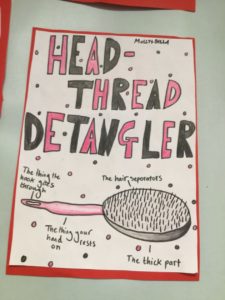 HEAD-
THREAD
DETANGLER
The thing the
hook goes
through
The hair seperators
The thing your
hand rests
on
The thick part